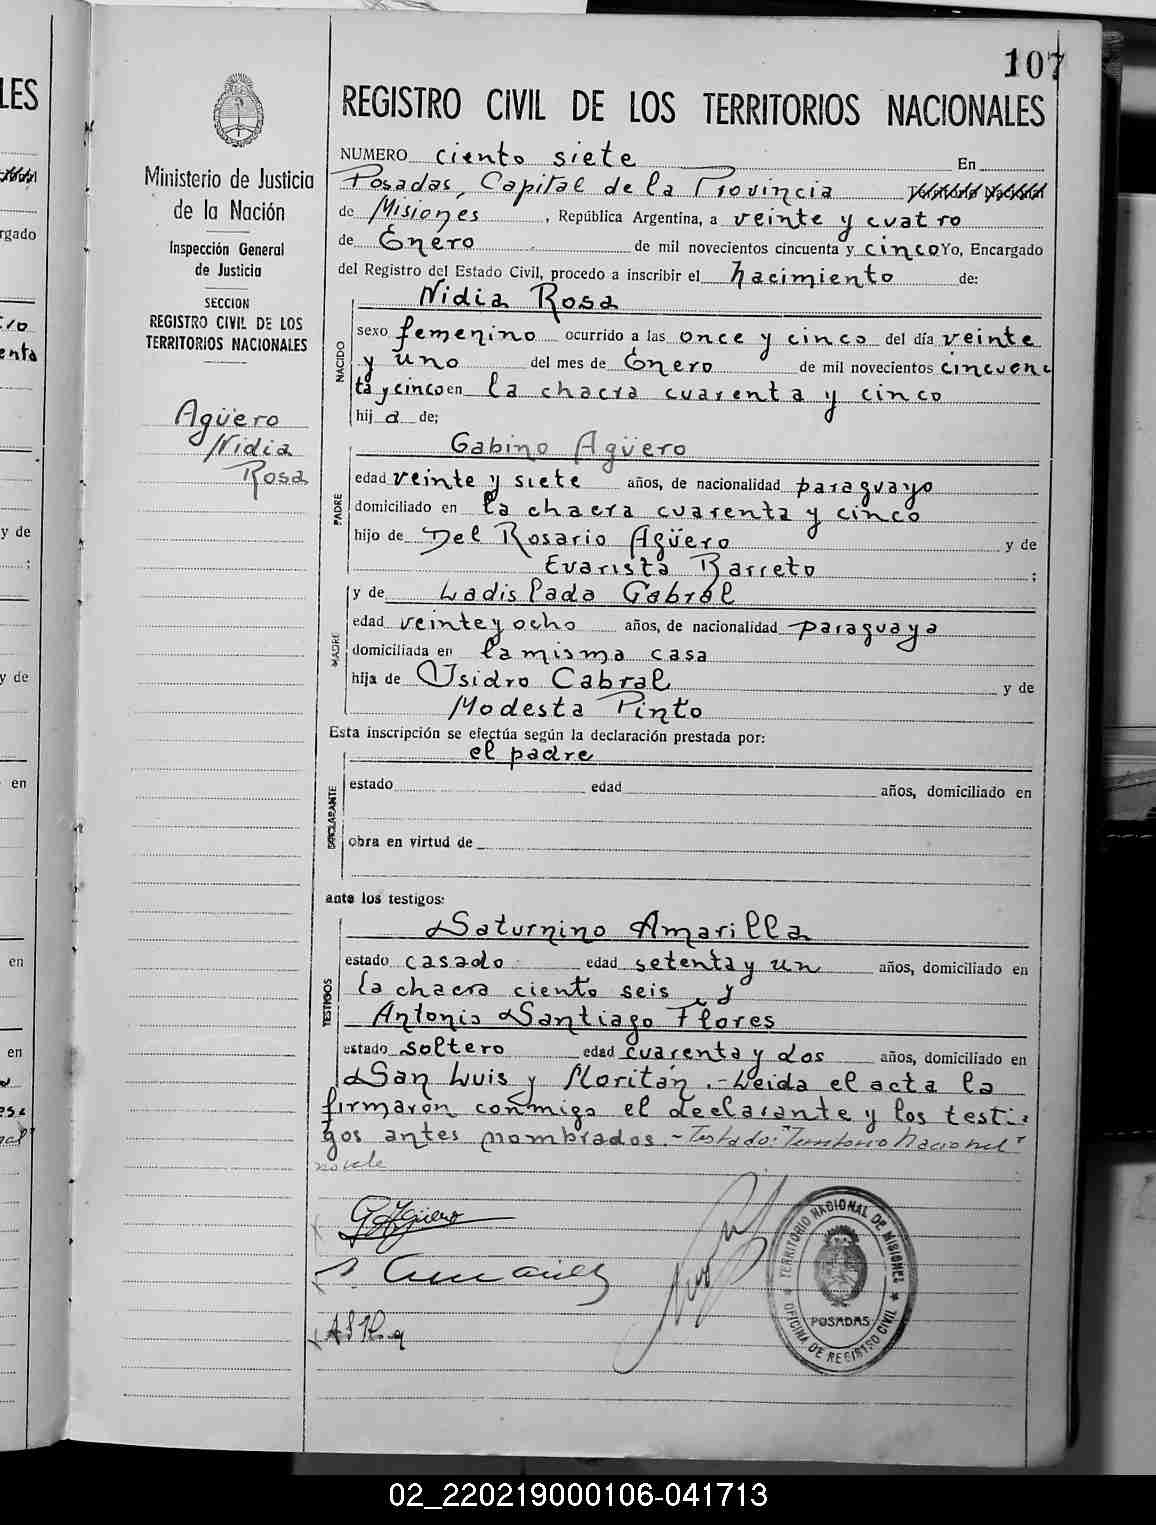 107
REGISTRO CIVIL DE LOS TERRITORIOS NACIONALES
NUMERO ciento siete En
Posadas, Capital de la Provincia
de Misiones, República Argentina, a veinte y cuatro
de Enero de mil novecientos cincuenta y cinco Yo, Encargado
del Registro del Estado Civil, procedo a inscribir el nacimiento de:
Nidia Rosa
NACIDO
sexo femenino ocurrido a las once y cinco del día veinte
y uno del mes de Enero de mil novecientos cincuen
ta y cinco en la chacra cuarenta y cinco
hij a de;
Gabino Agüero
PADRE
edad veinte y siete años, de nacionalidad paraguayo
domiciliado en la chacra cuarenta y cinco
hijo de Del Rosario Agüero y de
Evarista Barreto ;
y de Ladislada Cabral
MADRE
edad veinte y ocho años, de nacionalidad paraguaya
domiciliada en la misma casa
hija de Isidro Cabral y de
Modesta Pinto
Esta inscripción se efectúa según la declaración prestada por:
el padre
DECLARANTE
estado edad años, domiciliado en
obra en virtud de
ante los testigos:
Saturnino Amarilla
TESTIGOS
estado casado edad setenta y un años, domiciliado en
la chacra ciento seis y
Antonio Santiago Flores
estado soltero edad cuarenta y dos años, domiciliado en
San Luis y Moritán.- Leida el acta la
firmaron conmigo el declarante y los testi-
gos antes nombrados.- Testado: "Territorio Nacional"
no vale
G Agüero
TERRITORIO NACIONAL DE MISIONES
POSADAS
OFICINA DE REGISTRO CIVIL
Ministerio de Justicia
de la Nación
Inspección General
de Justicia
SECCION
REGISTRO CIVIL DE LOS
TERRITORIOS NACIONALES
Agüero
Nidia
Rosa
LES
rgado
y de
;
y de
en
en
en
02_220219000106-041713